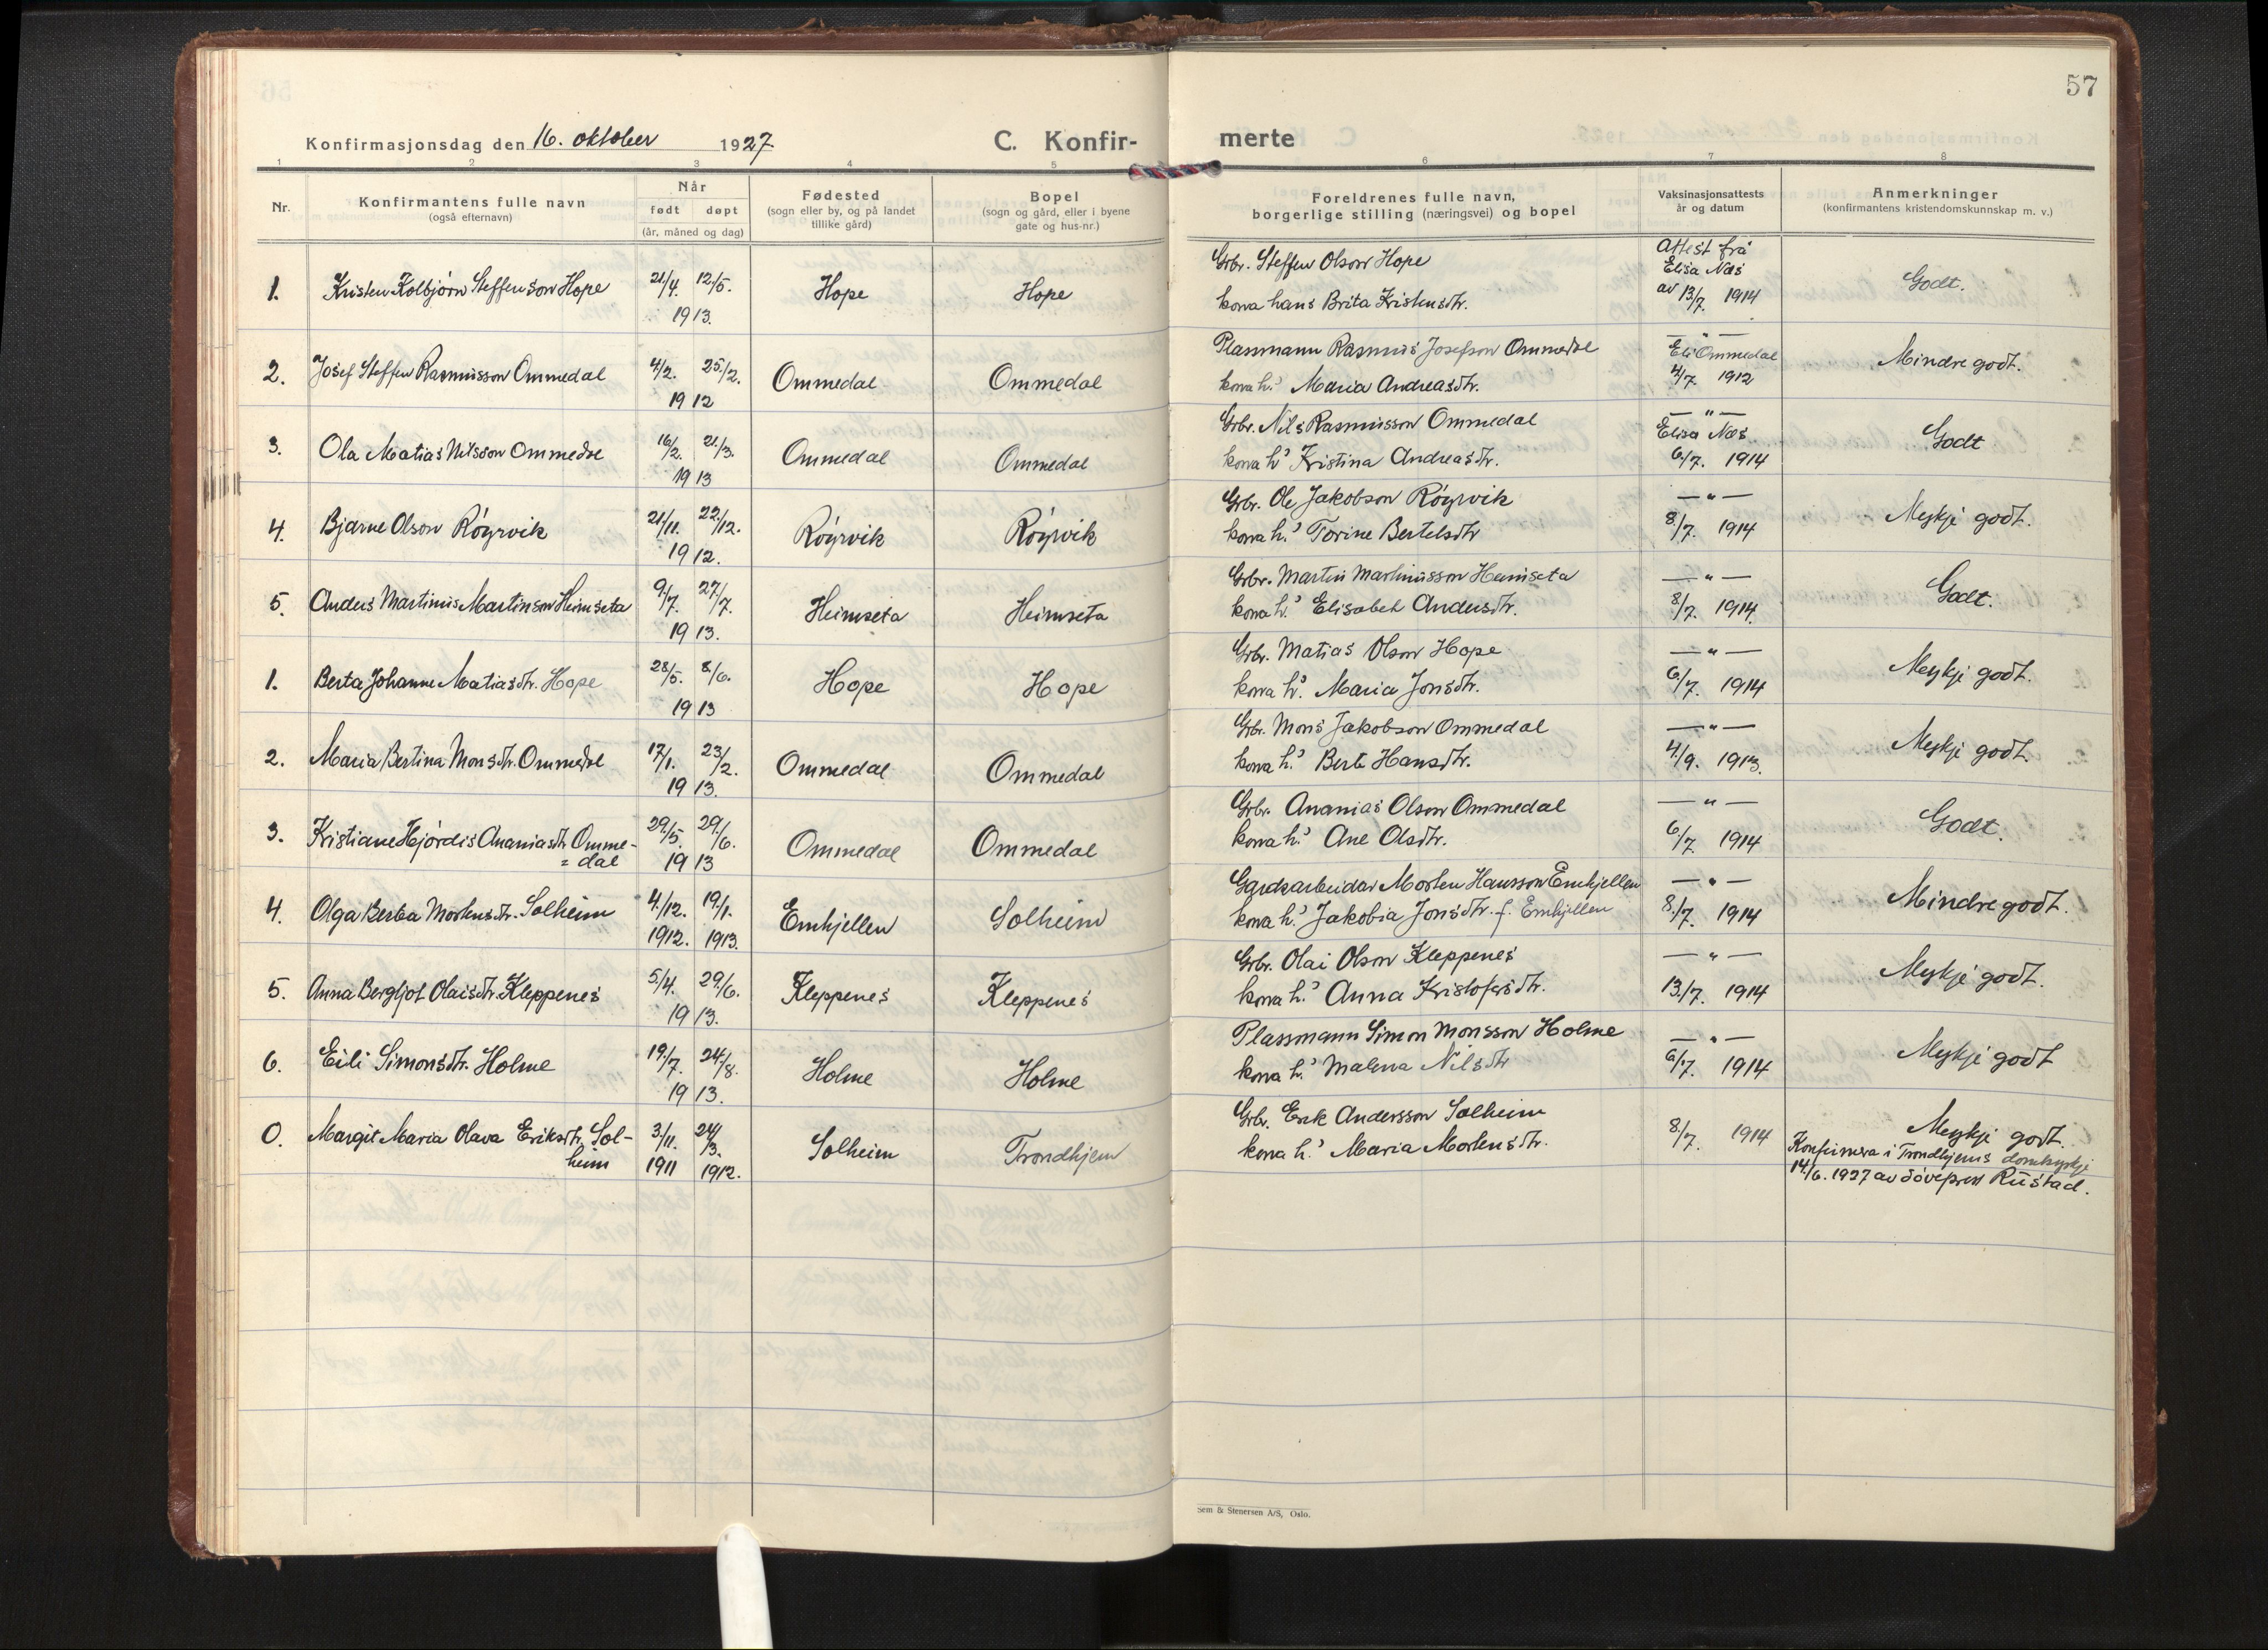 57
Konfirmasjonsdag den 16. oktober 1927
C. Konfir-
merte
1 2 3 4 5 6 7 8
Nr.
Konfirmantens fulle navn
(også efternavn)
Når
født døpt
(år, måned og dag)
Fødested
(sogn eller by, og på landet
tillike gård)
Bopel
(sogn og gård, eller i byene
gate og hus-nr.)
Foreldrenes fulle navn,
borgerlige stilling (næringsvei) og bopel
Vaksinasjonsattests
år og datum
Anmerkninger
(konfirmantens kristendomskunnskap m. v.)
1. Kristen Kolbjørn Steffenson Hope 21/4. 12/5. 1913. Hope Hope
Grbr. Steffen Olson Hope
kona hans Brita Kristensdtr.
Attest frå
Elisa Nes
av 13/7. 1914
Godt.
2. Josef Steffen Rasmusson Ommedal 4/2. 25/2. 1912 Ommedal Ommedal
Plassmann Rasmus Josefson Ommedal
kona h.s Maria Andreasdtr.
— " —
Eli Ommedal
4/7. 1912
Mindre godt.
3. Ola Matias Nilsson Ommedal 16/2. 21/3. 1913 Ommedal Ommedal
Grbr. Nils Rasmusson Ommedal
kona h.s Kristina Andreasdtr.
— " —
Elisa Nes
6/7. 1914
Godt
4. Bjarne Olson Röyrvik 21/11. 22/12. 1912. Röyrvik Röyrvik
Grbr. Ole Jakobson Röyrvik
kona h.s Torine Bertelsdtr
— " —
8/7. 1914
Mykje godt.
5. Anders Martinus Martinson Heimseta 9/7. 27/7. 1913. Heimseta Heimseta
Grbr. Martin Martinusson Heimseta
kona h.s Elisabet Andersdtr.
— " —
8/7. 1914.
Godt.
1. Berta Johanne Matiasdtr. Hope 28/5. 8/6. 1913 Hope Hope
Grbr. Matias Olson Hope
kona h.s Maria Jonsdtr.
— " —
6/7. 1914
Mykje godt.
2. Maria Bertina Monsdtr. Ommedal 17/1. 23/2. 1913. Ommedal Ommedal
Grbr. Mons Jakobson Ommedal
kona h.s Berte Hansdtr.
— " —
4/9. 1913.
Mykje godt.
3. Kristiane Hjördis Ananiasdtr Omme-
= dal
29/5. 29/6. 1913 Ommedal Ommedal
Grbr. Ananias Olson Ommedal
kona h.s Ane Olsdtr.
— " —
6/7. 1914
Godt.
4. Olga Berta Mortensdtr. Solheim 4/12. 1912. 19/1. 1913. Emhjellen Solheim
Gardsarbeidar Morten Hansson Emhjellen
kona h.s Jakobia Jonsdtr. f. Emhjellen
— " —
8/7. 1914
Mindre godt.
5. Anna Bergljot Olaisdtr. Kleppenes 5/4. 29/6. 1913. Kleppenes Kleppenes
Grbr. Olai Olson Kleppenes
kona h.s Anna Kristofersdtr.
— " —
13/7. 1914
Mykje godt.
6. Eili Simonsdtr. Holme 19/7. 24/8. 1913. Holme Holme
Plassmann Simon Monsson Holme
kona h.s Malena Nilsdtr
— " —
6/7. 1914
Mykje godt
0. Margit Maria Olava Eriksdtr. Sol-
heim
3/11. 1911 24/3. 1912. Solheim Trondhjem
Grbr. Erik Andersson Solheim
kona h.s Maria Mortensdtr.
8/7. 1914
Mykje godt.
Konfirmera i Trondhjems domkyrkje
14/6. 1927 av døveprest Rustad.
Sem & Stenersen A/S, Oslo.